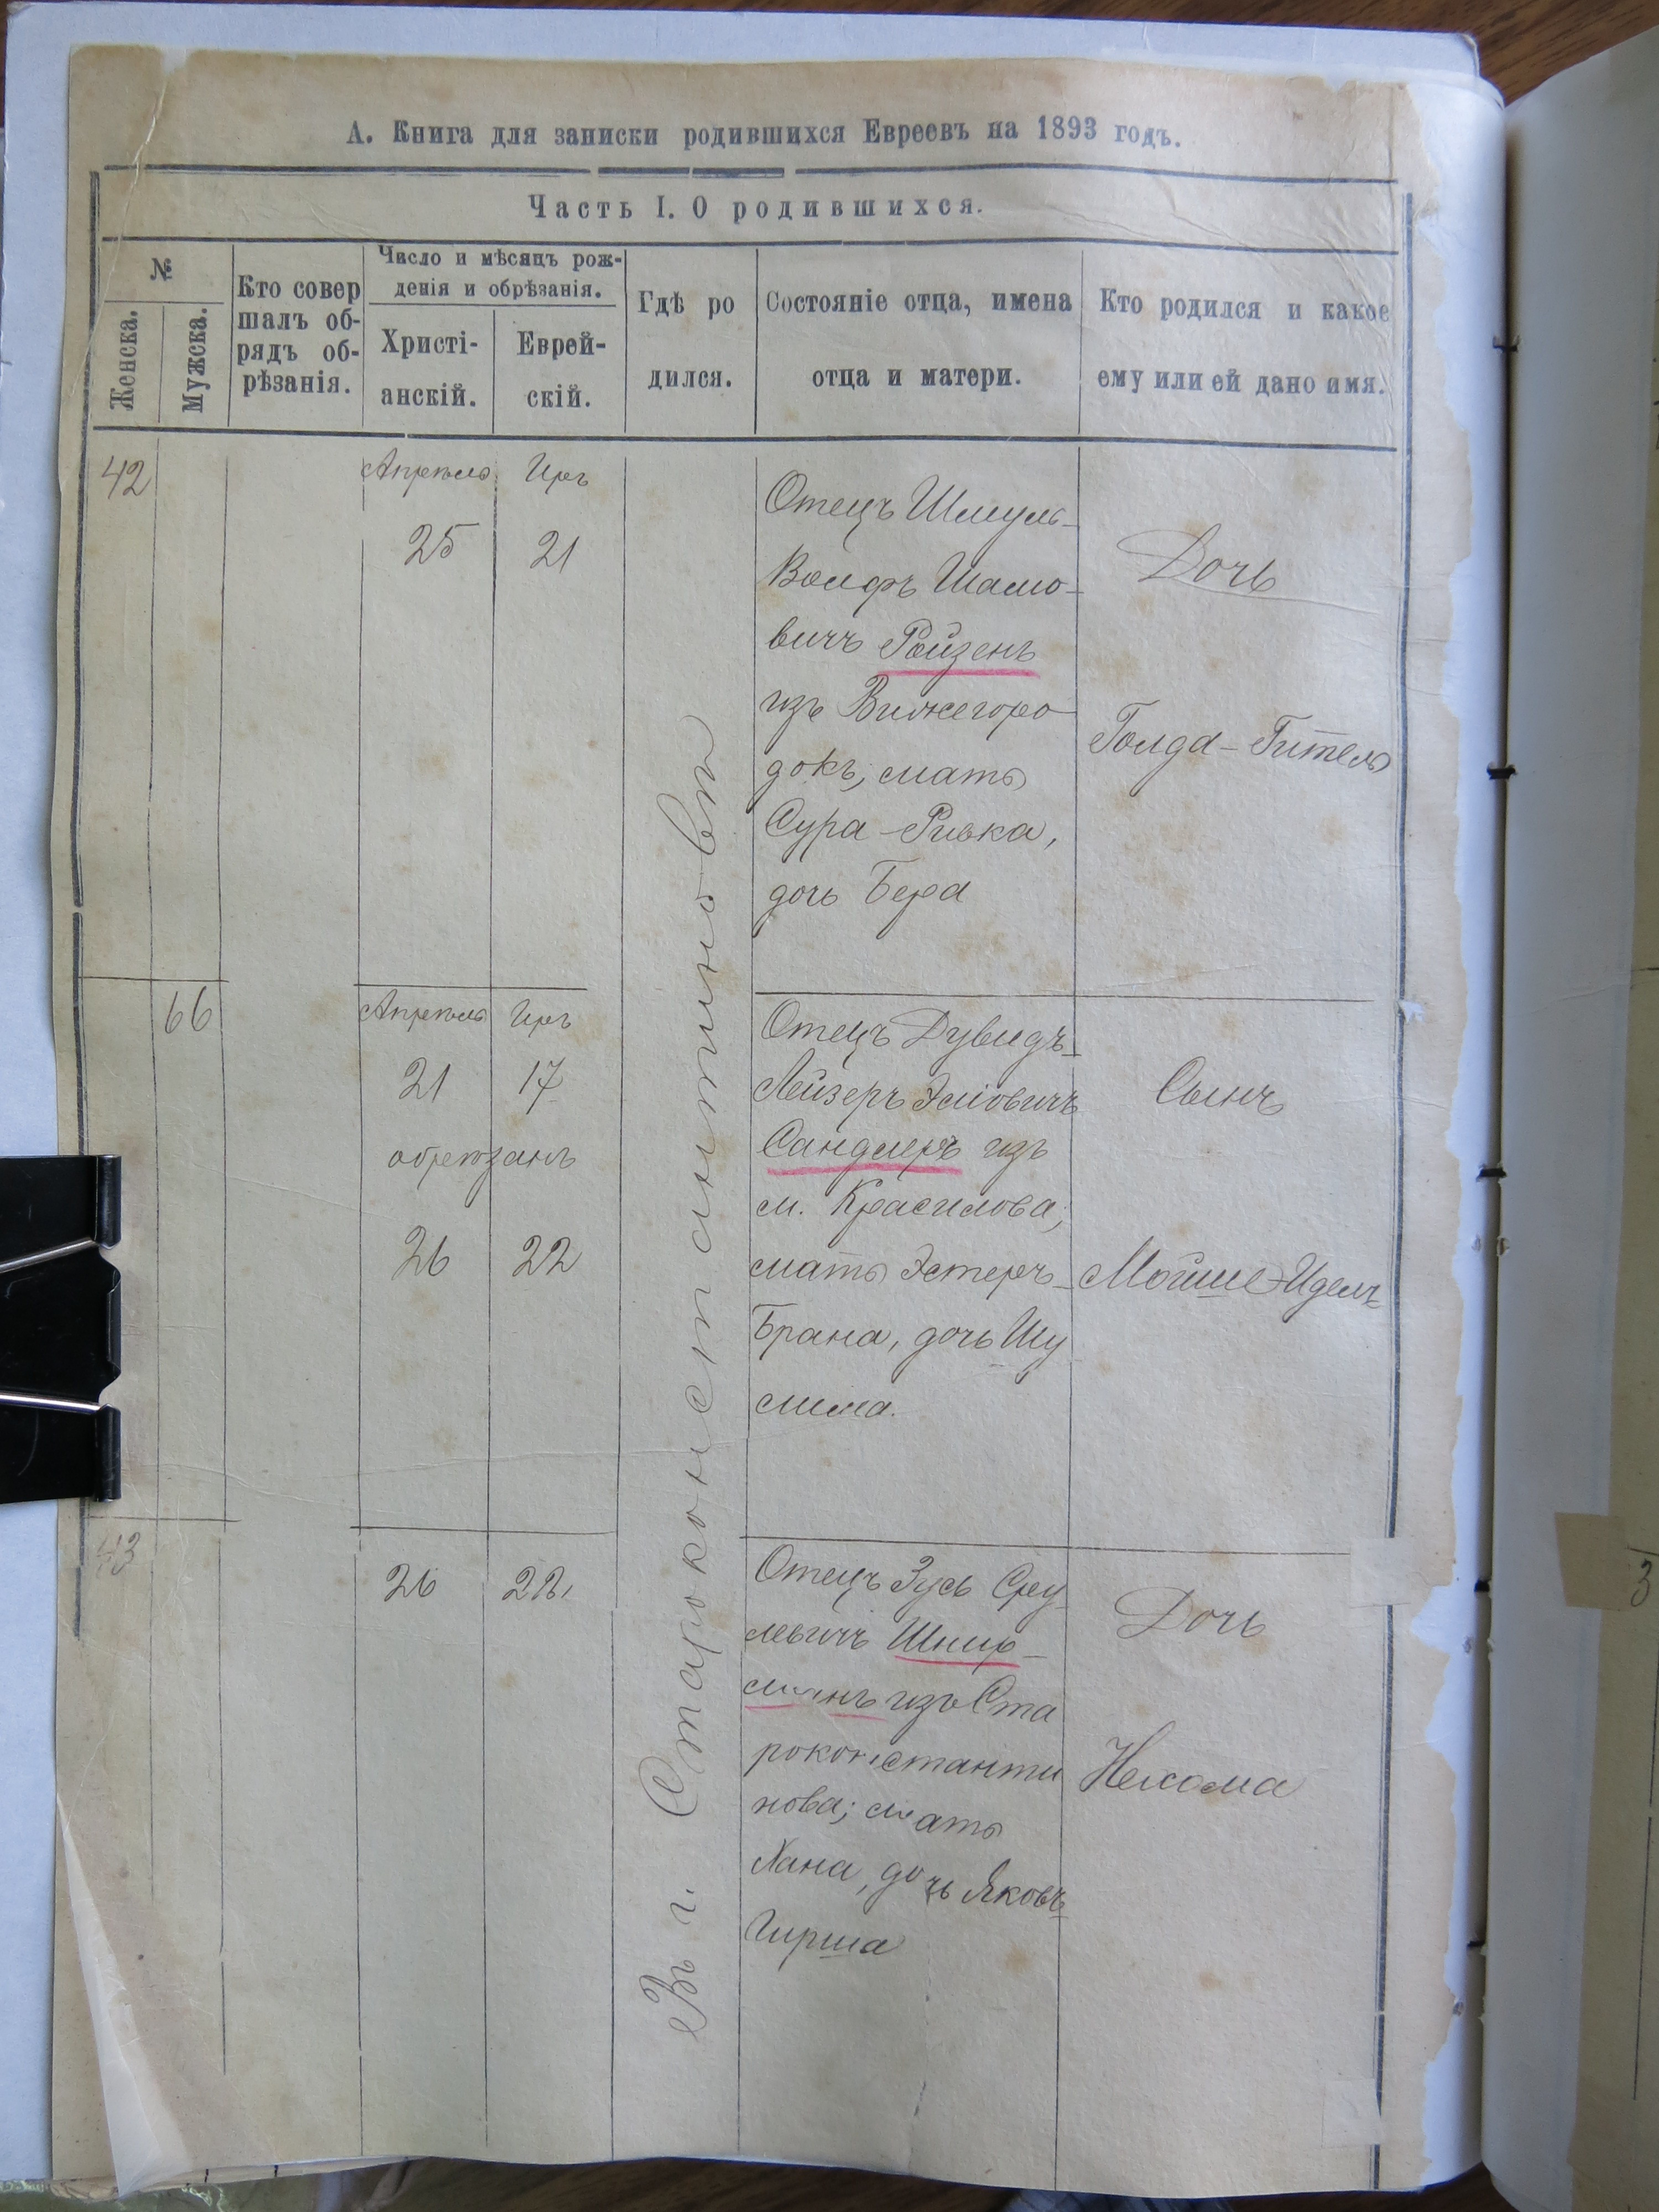 А. Книга для записки родившихся Евреевъ на 1893 годъ.
Часть I. О родившихся.
№
Женска.
Мужска.
Кто совер
шалъ об-
рядъ об-
рѣзанія.
Число и мѣсяцъ рож-
денія и обрѣзанія.
Христі-
анскій.
Еврей-
скій.
Гдѣ ро
дился.
Состояніе отца, имена
отца и матери.
Кто родился и какое
ему или ей дано имя.
Въ г. Староконстантиновѣ
42
Апрѣль Иръ
25 21
Отецъ Шмуль-
Волфъ Шамо-
вичъ Ройзенъ
изъ Вижегоро
докъ, мать
Сура-Ривка,
дочь Бера
Дочь
Голда-Гитель
66
Апрѣль Иръ
21 17
обрѣзанъ
26 22
Отецъ Дувидъ-
Лейзеръ Эліовичъ
Сандлеръ изъ
м. Красилова;
мать Эстеръ-
Брана, дочь Шу
лима.
Сынъ
Мойше-Идель
43
26 22
Отецъ Зусь Сру
левичъ Шнир-
манъ изъ Ста
роконстанти
нова; мать
Хана, дочь Яковъ
Гирша
Дочь
Нехама
3